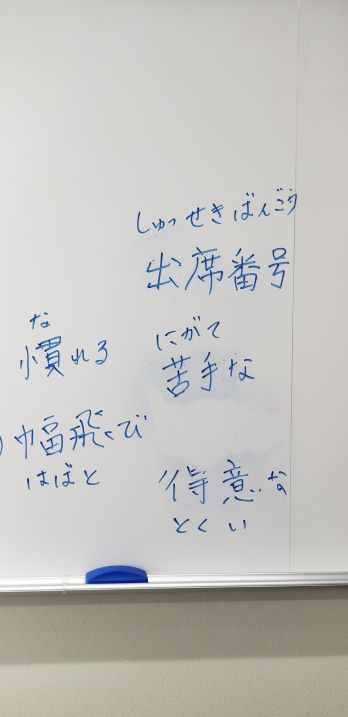 しゅっせきばんごう
出席番号
にがて
苦手な
得意な
とくい
な
慣れる
幅飛び
はばと